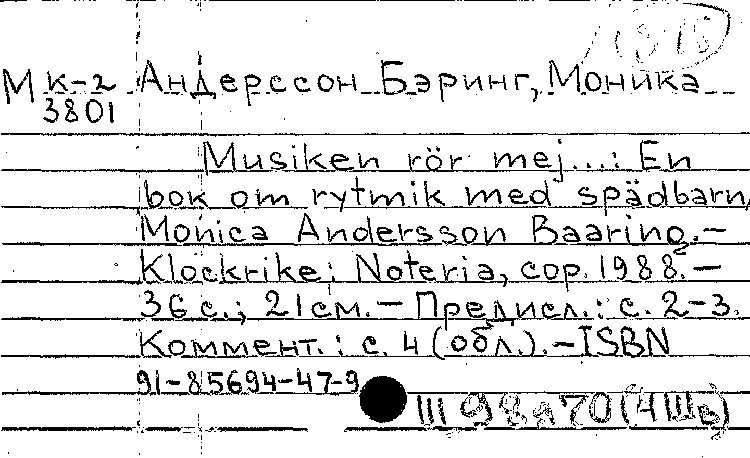 МК-2 Андерссон Бэринг, Моника
3801
Musiken rör mej...: En
bok om rytmik med spädbarn/
Monica Andersson Baaring.—
Klockrike: Noteria, cop. 1988.—
36 с.; 21 см.— Предисл.: с. 2-3.
Коммент.: с. 4 (обл.).—ISBN
91-85694-47-9